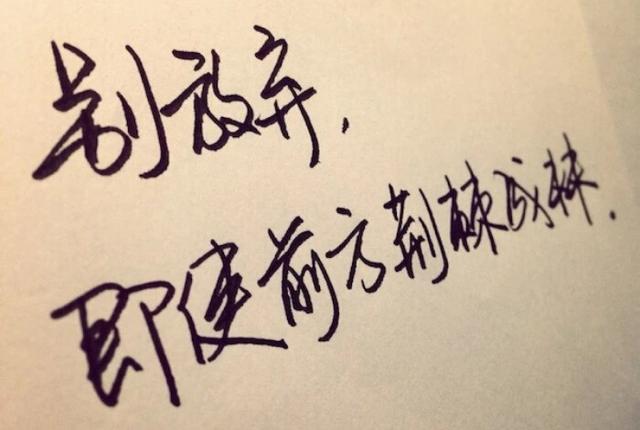 别放弃，
即使前方荆棘成林．